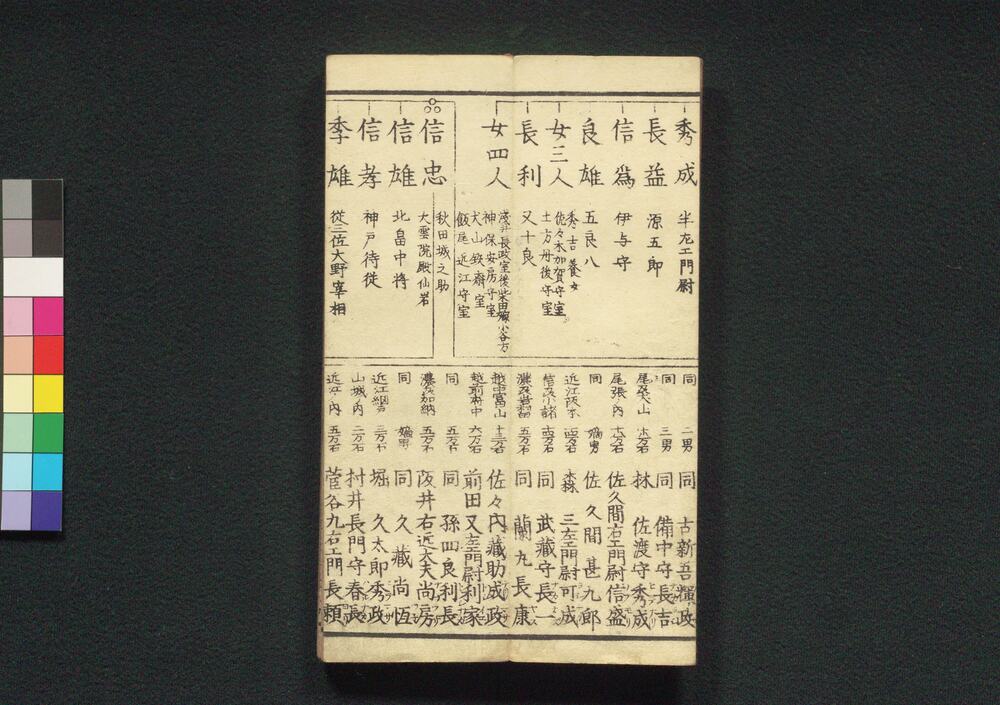 秀成 半左エ門尉
長益 源五郎
信爲 伊与守
良雄 五良八
女三人 秀吉養女
佐々木加賀守室
土方丹後守室
長利 又十良
女四人 浅井長政室後柴田室小谷方
神保安房守室
犬山鉄斎室
飯尾近江守室
秋田城之助
信忠 大雲院殿仙岩
信雄 北畠中将
信孝 神戸侍従
季雄 從三位大野宰相
同 二男 同 古新吾輝政
同 三男 同 備中守長吉
林 佐渡守秀成
尾張ノ内 佐久間右エ門尉信盛
同 嫡男 佐久間甚九郎
近江阪本 森 三左エ門尉可成
信及小諸 同 武藏守長一
五万石 同 蘭丸長康
越中富山 十三万石 佐々内藏助成政
越前府中 六万石 前田又左エ門尉利家
同 五万石 同 孫四良利長
濃及加納 五万石 阪井右近大夫尚房
同 嫡男 同 久藏尚恆
近江 堀 久太郎秀政
山城ノ内 二万石 村井長門守春長
近江ノ内 五万石 菅谷九右エ門長頼